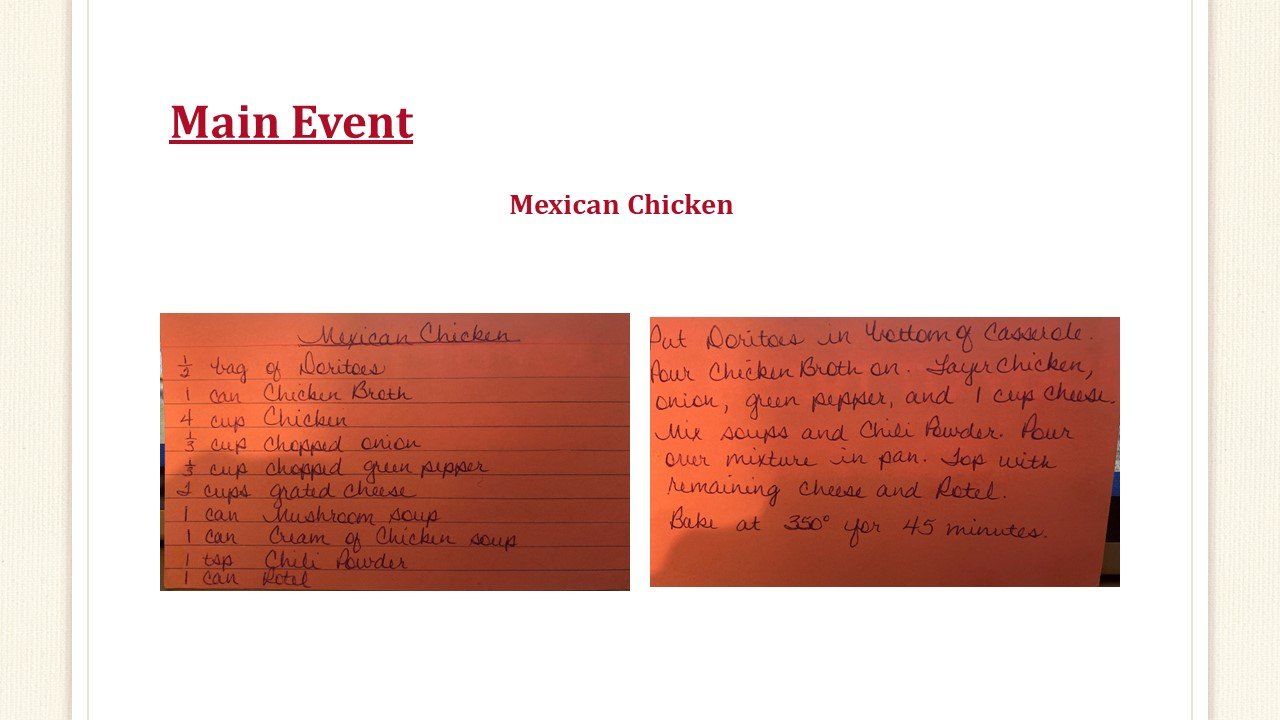 Main Event
Mexican Chicken
Mexican Chicken
1/2 bag of Doritoes
1 can Chicken Broth
4 cup Chicken
1/3 cup chopped onion
1/3 cup chopped green pepper
2 cups grated cheese
1 can Mushroom soup
1 can Cream of Chicken soup
1 tsp Chili Powder
1 can Rotel
Put Doritoes in bottom of Casserole.
Pour Chicken Broth on. Layer Chicken,
onion, green pepper, and 1 cup cheese.
Mix soups and Chili Powder. Pour
over mixture in pan. Top with
remaining cheese and Rotel.
Bake at 350° for 45 minutes.